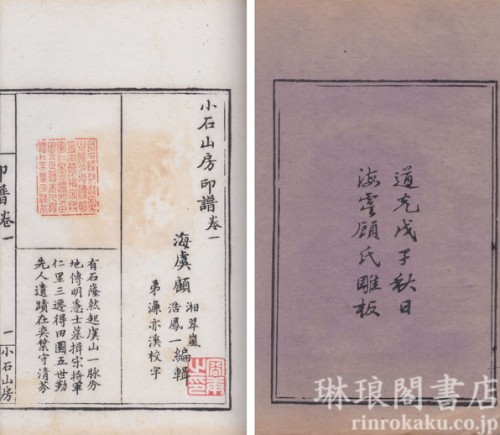 小石山房印譜卷一
海虞顧
湘翠嵐
浩鳳一
編輯
弟濂亦溪校字
有石蔭然起虞山一脉分
地傳明惠士墓揖宋將軍
仁里三遷得田園五世勤
先人遺蹟在奕葉守清芬
印譜卷一
一
小石山房
道光戊子秋日
海虞顧氏雕板
琳琅閣書店
rinrokaku.co.jp